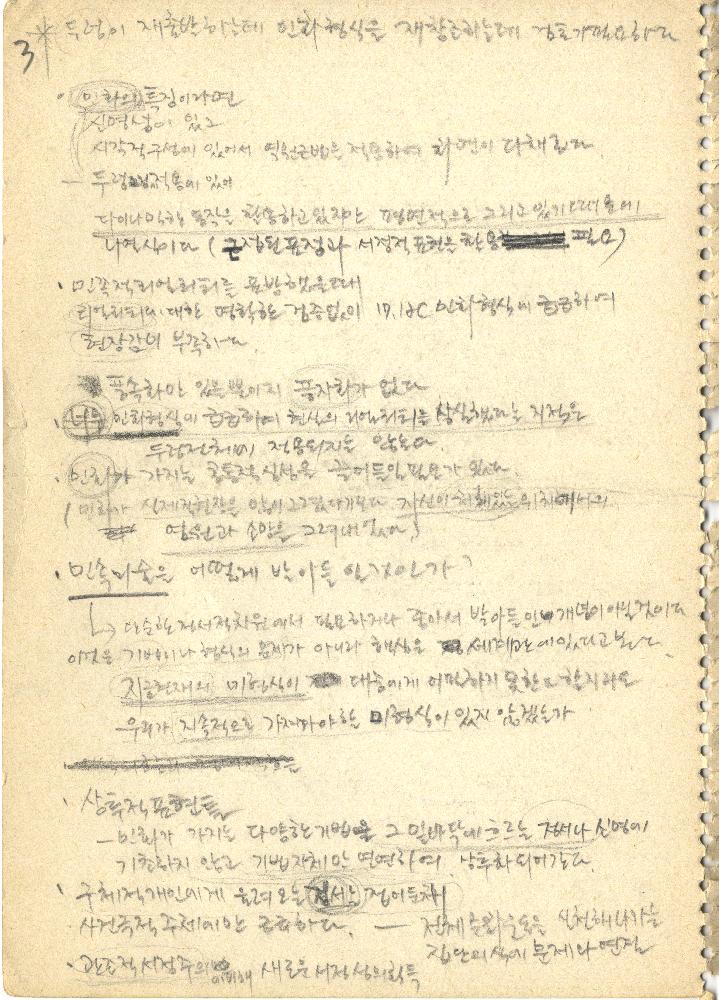 3 * 두렁이 재출발하는데 민화형식을 재창조하는데 검토가 필요하다
· 민화의 특징이라면
신명성이 있고
시각적구성에 있어서 역원근법을 적용하여 화면이 다채롭다.
— 두렁 적용에 있어
동작은 활용하고 있지만 평면적으로 그리고 있기때문에
나열식이다 ( 표정과 서정적 표현을 활용 필요)
· 민족적리얼리티를 표방했을때
리얼리티에 대한 명확한 검증없이 17, 18C 민화형식에 급급하여
현장감이 부족하다.
풍속화만 있을뿐이지 풍자화가 없다
· 너무 민화형식에 급급하여 현실의 리얼리티를 상실했다는 지적은
두렁전체에 적용되지는 않는다.
· 민화가 가지는 공통적심성을 끌어들일필요가 있다.
(민화가 실제적현장은 많이 그렸다기보다 자신이 처해있는위치에서의
염원과 소망을 그려내었다)
· 민속미술은 어떻게 받아들일것인가?
↳ 단순한 정서적차원에서 필요하거나 좋아서 받아들인 개념이 아닐것이다
이것은 기법이나 형식의 문제가 아니라 핵심은 세계관에있다고본다.
지금현재의 미형식이 대중에게 어필하지 못한다 할지라도
— 우리가 지속적으로 가져야할 미형식이 있지 않겠는가
· 상투적표현들
— 민화가 가지는 다양한기법을 그 밑바닥에흐르는 정서나 신명에
기초하지 않고 기법자체만 연연하여, 상투화되어간다.
· 구체적개인에게 울려오는 정서는 접어둔채
사건극적주제에만 급급하다. — 전체문화운동은 실천해나가는
집단의식에 문제와 연결
· 관조적서정주의 새로운 서정성의획득